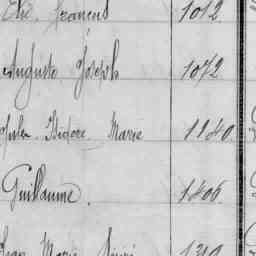 François 1012
Auguste Joseph 1072
Jules Isidore Marie 1140
Guillaume. 1406
Jean Marie